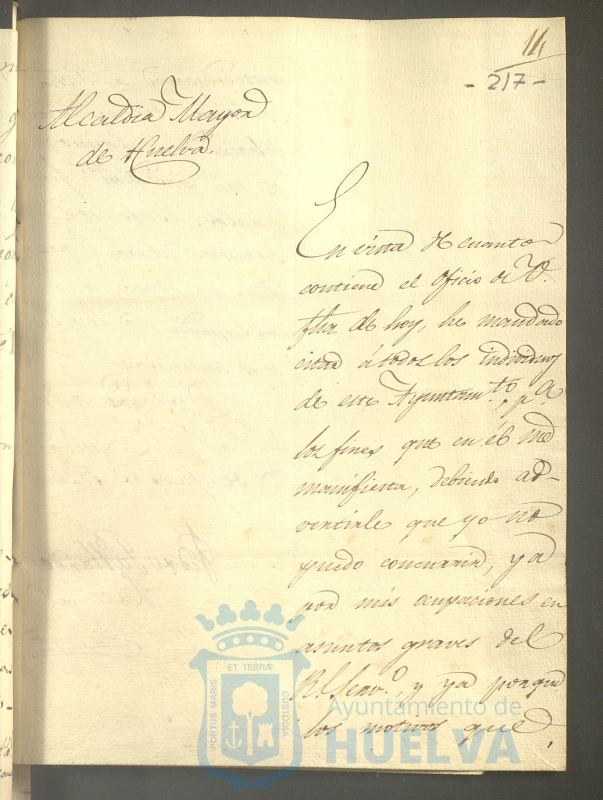 14
- 217 -
Alcaldia Mayor
de Huelva.
En vista de cuanto
contiene el oficio de V.
fha de hoy, he mandado
citar á todos los individuos
de este Ayuntam.to, p.a
los fines que en él me
manifiesta, debiendo ad-
vertirle que yo no
puedo concurrir, ya
por mis ocupaciones en
asuntos graves del
R.l Serv.o, y ya porque
los motivos que
PORTUS MARIS
ET TERRÆ
CUSTODIA
Ayuntamiento de
HUELVA